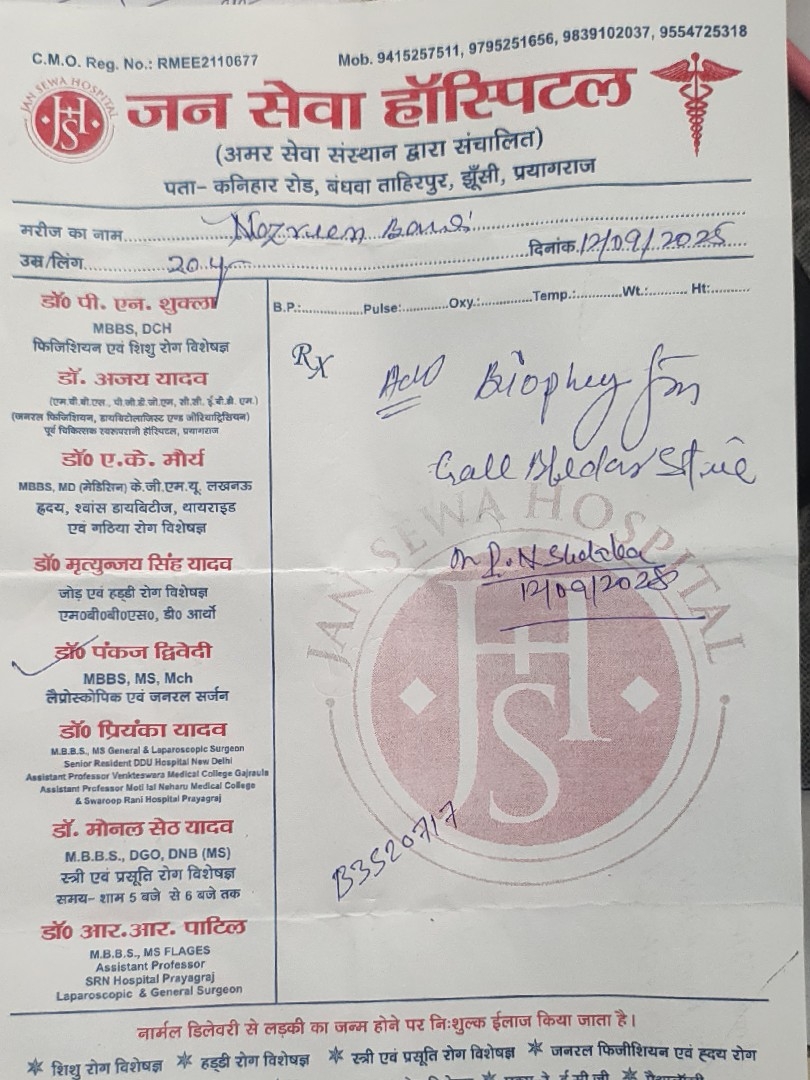 C.M.O. Reg. No.: RMEE2110677
Mob. 9415257511, 9795251656, 9839102037, 9554725318
JAN SEWA HOSPITAL
JHS
जन सेवा हॉस्पिटल
(अमर सेवा संस्थान द्वारा संचालित)
पता- कनिहार रोड, बंघवा ताहिरपुर, झूँसी, प्रयागराज
मरीज का नाम
उम्र/लिंग 20 y दिनांक 12/09/2025
B.P.: Pulse: Oxy.: Temp.: Wt.: Ht:
Rx
Adv Biophey for
Gall Bledar Stone
Dr P. N Shukla
12/09/2025
B3520717
JAN SEWA HOSPITAL
JHS
डॉ० पी. एन. शुक्ला
MBBS, DCH
फिजिशियन एवं शिशु रोग विशेषज्ञ
डॉ. अजय यादव
(जनरल फिजिशियन, डायबिटोलाजिस्ट एण्ड जीरियाट्रिसियन)
पूर्व चिकित्सक स्वरूपरानी हॉस्पिटल, प्रयागराज
डॉ० ए.के. मौर्य
MBBS, MD (मेडिसिन) के.जी.एम.यू. लखनऊ
ह्रदय, श्वांस डायबिटीज, थायराइड
एवं गठिया रोग विशेषज्ञ
डॉ० मृत्युन्जय सिंह यादव
जोड़ एवं हड्डी रोग विशेषज्ञ
एम०बी०बी०एस०, डी० आर्थो
डॉ० पंकज द्विवेदी
MBBS, MS, Mch
लैप्रोस्कोपिक एवं जनरल सर्जन
डॉ० प्रियंका यादव
M.B.B.S., MS General & Laparoscopic Surgeon
Senior Resident DDU Hospital New Delhi
Assistant Professor Venkteswara Medical College Gajraula
Assistant Professor Moti lal Neharu Medical College
& Swaroop Rani Hospital Prayagraj
डॉ. मोनल सेठ यादव
M.B.B.S., DGO, DNB (MS)
स्त्री एवं प्रसूति रोग विशेषज्ञ
समय- शाम 5 बजे से 6 बजे तक
डॉ० आर.आर. पाटिल
M.B.B.S., MS FLAGES
Assistant Professor
SRN Hospital Prayagraj
Laparoscopic & General Surgeon
नार्मल डिलेवरी से लड़की का जन्म होने पर निःशुल्क ईलाज किया जाता है।
शिशु रोग विशेषज्ञ हड्डी रोग विशेषज्ञ स्त्री एवं प्रसूति रोग विशेषज्ञ जनरल फिजीशियन एवं ह्दय रोग